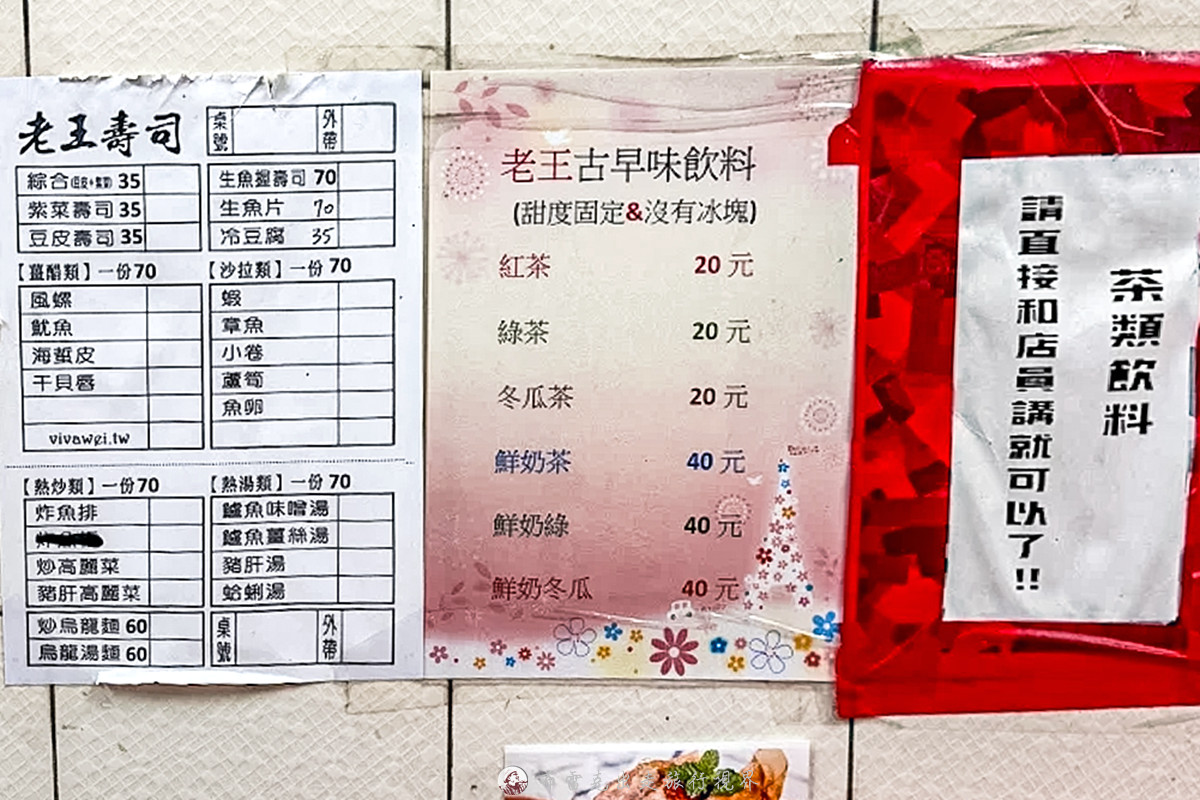 老王壽司
桌號
外帶
綜合(豆皮+紫菜) 35
紫菜壽司 35
豆皮壽司 35
生魚握壽司 70
生魚片 70
冷豆腐 35
【薑醋類】一份70
風螺
魷魚
海蜇皮
干貝唇
vivawei.tw
【沙拉類】一份70
蝦
章魚
小卷
蘆筍
魚卵
【熱炒類】一份70
炸魚排
炒高麗菜
豬肝高麗菜
炒烏龍麵 60
烏龍湯麵 60
【熱湯類】一份70
鱸魚味噌湯
鱸魚薑絲湯
豬肝湯
蛤蜊湯
桌號
外帶
老王古早味飲料
(甜度固定&沒有冰塊)
紅茶 20 元
綠茶 20 元
冬瓜茶 20 元
鮮奶茶 40 元
鮮奶綠 40 元
鮮奶冬瓜 40 元
茶類飲料
請直接和店員講就可以了!!
旅行視界